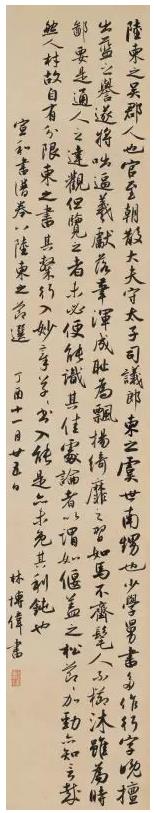 陸東之吳郡人也官至朝散大夫守太子司議郎東之虞世南甥也少學舅書多作行字晚擅
出藍之譽遂將咄逼羲獻落筆渾成耻為飄揚綺靡之習如馬不齊髦人不櫛沐雖為時
鄙要是通人之達觀但覽之者未必便能識其佳處論者以謂如偃蓋之松節加勁亦知言哉
然人材故自有分限東之書其隸行入妙章草書入能是亦未免其利鈍也
宣和書譜卷八陸東之節選
丁酉十一月廿五日
林博偉書